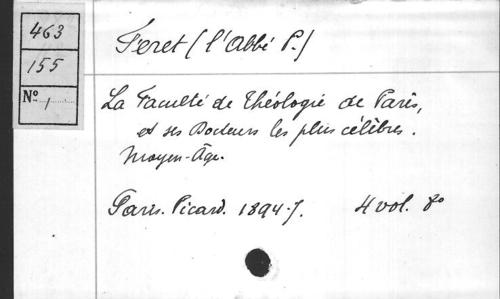 463
155
Nº 1
Feret (l'Abbé P.)
La Faculté de Théologie de Paris,
et ses Docteurs les plus célèbres.
Moyen-Âge.
Paris. Picard. 1894-7. 4 vol. 8º